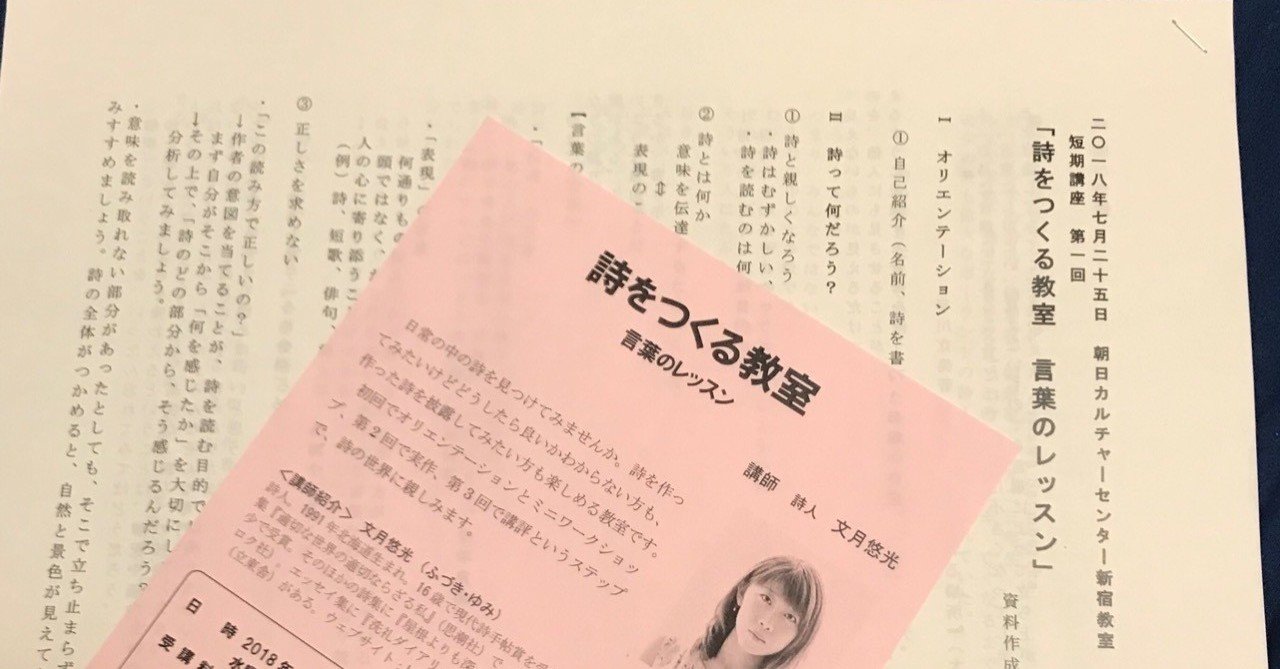 二〇一八年七月二十五日　朝日カルチャーセンター新宿教室
短期講座　第一回
「詩をつくる教室　言葉のレッスン」
資料作成
Ⅰ　オリエンテーション
①自己紹介（名前、詩を書
Ⅱ　詩って何だろう？
①詩と親しくなろう
・詩はむずかしい、
・詩を読むのは何
②詩とは何か
意味を伝達
⇕
表現のこ
【言葉の
・「表現」
何通りもの
頭ではなく、
人の心に寄り添うこ
（例）詩、短歌、俳句、
③正しさを求めない
・「この読み方で正しいの？」
→作者の意図を当てることが、詩を読む目的で
まず自分がそこから「何を感じたか」を大切にし
→その上で、「詩のどの部分から、そう感じるんだろう？
分析してみましょう。
・意味を読み取れない部分があったとしても、そこで立ち止まらず
みすすめましょう。詩の全体がつかめると、自然と景色が見えて
詩をつくる教室
言葉のレッスン
講師　詩人　文月悠光
日常の中の詩を見つけてみませんか。詩を作っ
てみたいけどどうしたら良いかわからない方も、
作った詩を披露してみたい方も楽しめる教室です。
初回でオリエンテーションとミニワークショッ
プ、第2回で実作、第3回で講評というステップ
で、詩の世界に親しみます。
＜講師紹介＞　文月悠光（ふづき・ゆみ）
詩人。1991年北海道生まれ。16歳で現代詩手帖賞を受
集『適切な世界の適切ならざる私』（思潮社）で
少で受賞。そのほかの詩集に『屋根よりも深
ロク社）。エッセイ集に『洗礼ダイアリ
（立東舎）がある。ウェブサイト
日　時　2018年
水曜
受講料